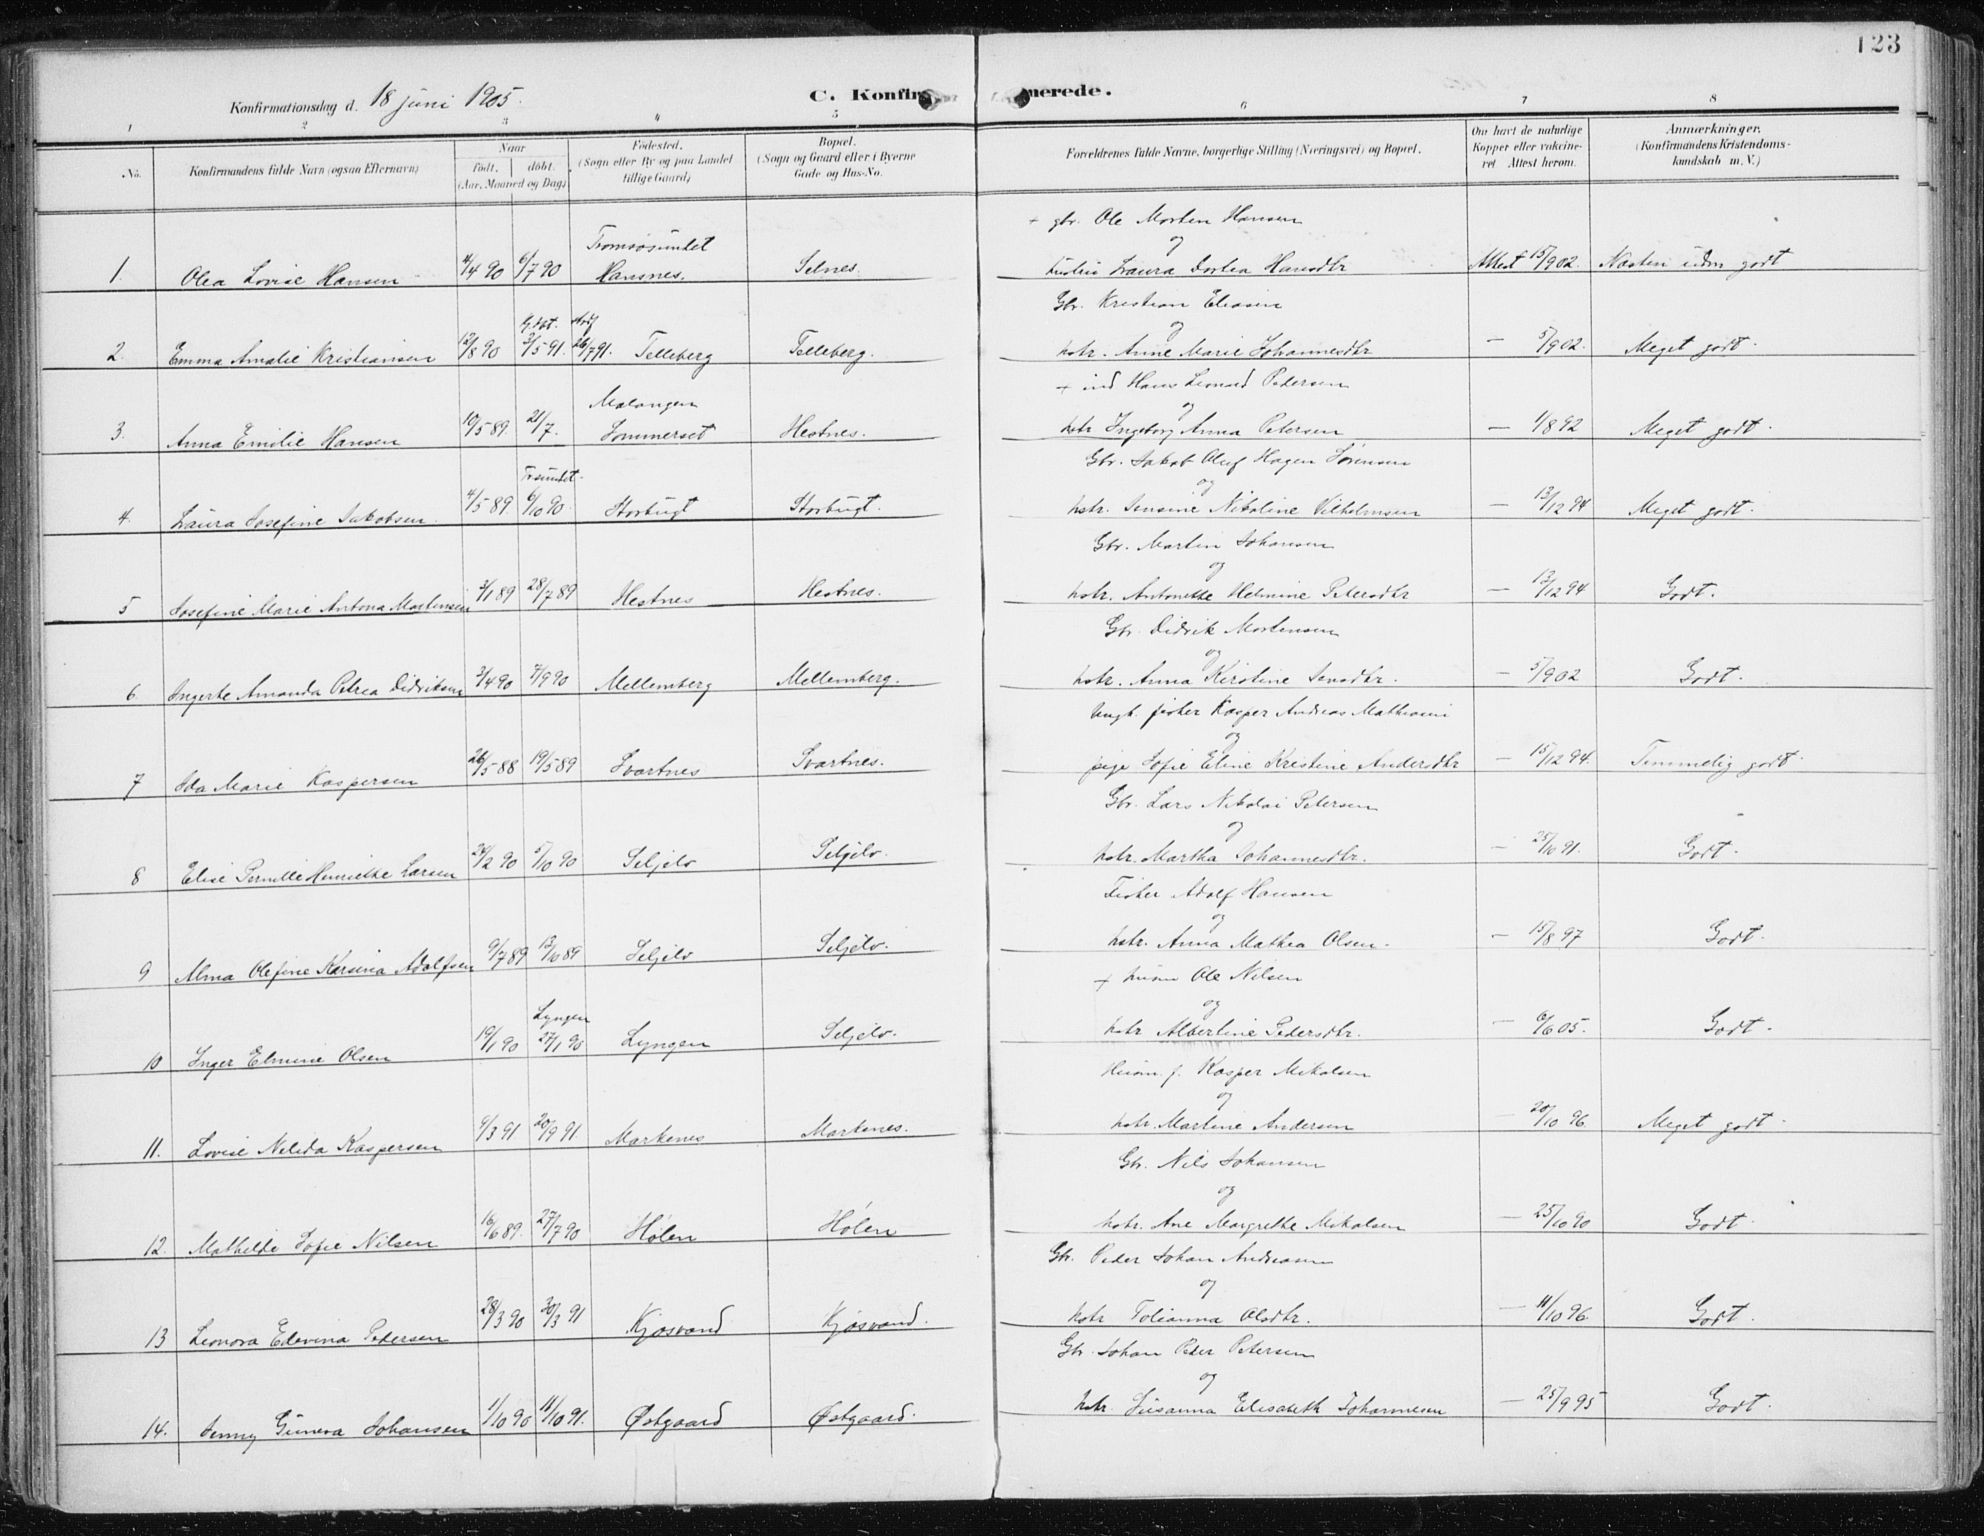 123
Konfirmationsdag d. 18 juni 1905.
C. Konfir merede.
1 2 3 4 5 6 7 8
No.
Konfirmandens fulde Navn (ogsaa Efternavn)
Naar
Født. døbt.
(Aar, Maaned og Dag)
Fødested.
(Sogn eller By og paa Landet
tillige Gaard)
Bopæl.
(Sogn og Gaard eller i Byerne
Gade og Hus-No.
Forældrenes fulde Navne, borgerlige Stilling (Næringsvei) og Bopæl.
Om havt de naturlige
Kopper eller vakcine-
ret Attest herom.
Anmærkninger.
(Konfirmandens Kristendoms-
kundskab m. V.)
+ gbr. Ole Morten Hansen
Tromsøsundet og
1. Olea Lovise Hansen 4/4 90 6/7 90 Hansnes. Selnes. hustru Laura Dortea Hansdtr Attest 15/902. Næsten udm godt
Gbr. Kristian Eliasen
hj.dbt. stadf og
2. Emma Amalie Kristiansen 12/8 90 3/5 91. 26/7 91. Telleberg Telleberg. hstr. Anne Marie Johannesdtr — 5/902. Meget godt.
+ ind Hans Leonard Pedersen
Malangen og
3. Anna Emilie Hansen 10/5 89. 21/7. Sommerset Hestnes. hstr Ingeborg Anna Petersen — 1/8 92 Meget godt.
Gbr. Jakob Oluf Hagen Sørensen
Trsundet. og
4. Laura Josefine Jakobsen. 4/5 89. 6/10 90. Storbugt Storbugt. hstr. Jensine Nikoline Vilhelmsen — 13/12 94 Meget godt.
Gbr. Martin Johansen
og
5 Josefine Marie Antona Martinsen 3/1 89 28/7 89 Hestnes Hestnes. hstr. Antonette Helmine Petersdtr — 13/12 94 Godt.
Gbr. Didrik Mortensen
og
6. Ingerte Amanda Petrea Didriksen 3/4 90 7/9 90 Mellemberg Mellemberg. hstr. Anna Kirstine Jensdtr. — 5/902 Godt.
Ungk. fisker Kasper Andreas Mathisen
og
7 Ida Marie Kaspersen 26/5 88 19/5 89 Svartnes Svartnes. pige Sofie Eline Kristine Andersdtr — 15/12 94. Temmelig godt.
Gbr. Lars Nikolai Petersen
og
8 Elise Pernille Henrikke Larsen 24/2 90 5/10 90 Seljelv Seljelv. hstr. Martha Johannesdtr. — 25/10 91. Godt.
Fisker Adolf Hansen
og
9 Alma Olefine Karsina Adolfsen 9/7 89 13/10 89 Seljelv Seljelv. hstr. Anna Mathea Olsen. — 15/8 97 Godt.
+ husm Ole Nilsen
Lyngen og
10 Inger Elmine Olsen 19/1 90 27/1 90 Lyngen Seljelv. hstr Albertine Pedersdtr. — 6/6 05. Godt.
Husm. f. Kasper Mikalsen
og
11. Lovise Nelida Kaspersen 6/3 91 20/9 91. Markenes Markenes. hstr. Martine Andersen — 20/10 96 Meget godt.
Gbr. Nils Johansen
og
12. Mathilde Sofie Nilsen 16/6 89. 27/7 90 Hølen Hølen hstr. Ane Margrethe Mikalsen — 25/10 90 Godt.
Gbr. Peder Johan Andreasen
og
13 Leonora Edevina Pedersen 28/3 90 30/3 91 Kjosvand Kjosvand. hstr Tolianna Olsdtr. — 11/10 96 Godt.
Gbr. Johan Peder Petersen
og
14. Jenny Gunera Johansen 1/10 90 11/10 91. Østgaard Østgaard. hstr. Susanna Elisabeth Johannesen — 25/9 95 Godt.